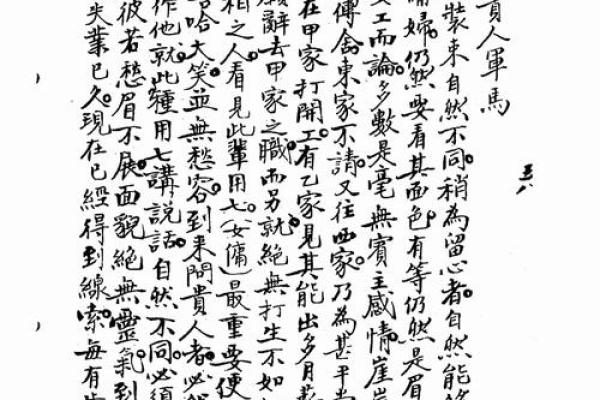 貴人軍馬
裝束自然不同。稍為留心者。自然能
婦。仍然要看其面色。有等仍然是眉
工而論。多數是毫無賓主感情。崖
傳舍。東家不請。又往西家。乃為甚平
在甲家打開工。有乙家見其能出多月
辭去甲家之職。而另就。絕無打生不如
相之人。看見此輩用七(女傭)最重要便
哈大笑。並無愁容。到来問貴人者。必
作他就。此種用七講說話。自然不同。必須
彼若愁眉不展。面貌絕無靈氣。到
失業已久。現在已經得到線索。每有
五八